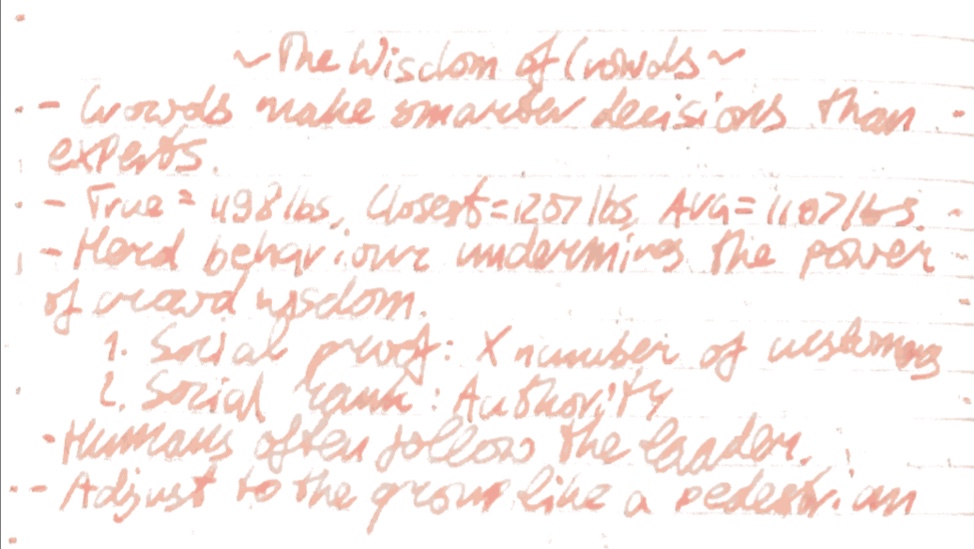 ~The Wisdom of Crowds~
- Crowds make smarter decisions than
experts.
- True = 1198 lbs, Closest = 1207 lbs, AVG = 1187 lbs.
- Herd behaviour undermines the power
of crowd wisdom.
1. Social proof: X number of customers
2. Social rank: Authority
- Humans often follow the leader.
- Adjust to the group like a pedestrian